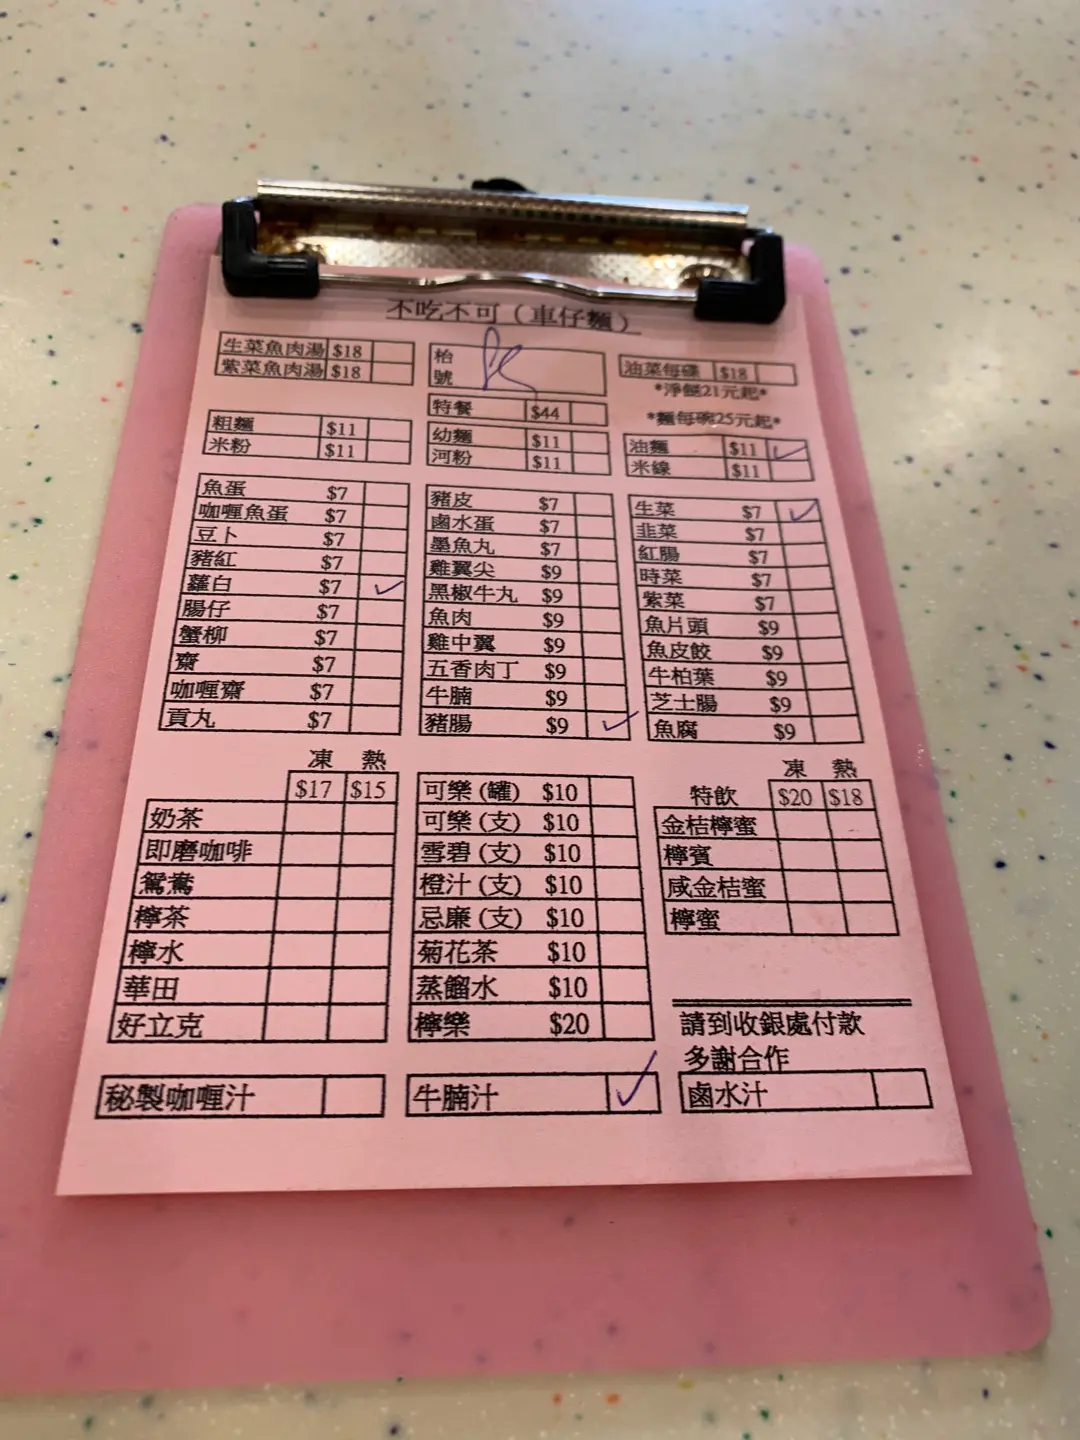 不吃不可（車仔麵）
生菜魚肉湯 $18
紫菜魚肉湯 $18
枱號
油菜每碟 $18
*淨餸21元起*
特餐 $44
*麵每碗25元起*
粗麵 $11
米粉 $11
幼麵 $11
河粉 $11
油麵 $11 ✓
米線 $11
魚蛋 $7
咖喱魚蛋 $7
豆卜 $7
豬紅 $7
蘿白 $7 ✓
腸仔 $7
蟹柳 $7
齋 $7
咖喱齋 $7
貢丸 $7
豬皮 $7
鹵水蛋 $7
墨魚丸 $7
雞翼尖 $9
黑椒牛丸 $9
魚肉 $9
雞中翼 $9
五香肉丁 $9
牛腩 $9
豬腸 $9 ✓
生菜 $7 ✓
韭菜 $7
紅腸 $7
時菜 $7
紫菜 $7
魚片頭 $9
魚皮餃 $9
牛柏葉 $9
芝士腸 $9
魚腐 $9
凍 熱
$17 $15
奶茶
即磨咖啡
鴛鴦
檸茶
檸水
華田
好立克
可樂 (罐) $10
可樂 (支) $10
雪碧 (支) $10
橙汁 (支) $10
忌廉 (支) $10
菊花茶 $10
蒸餾水 $10
檸樂 $20
凍 熱
特飲 $20 $18
金桔檸蜜
檸賓
咸金桔蜜
檸蜜
請到收銀處付款
多謝合作
秘製咖喱汁
牛腩汁 ✓
鹵水汁